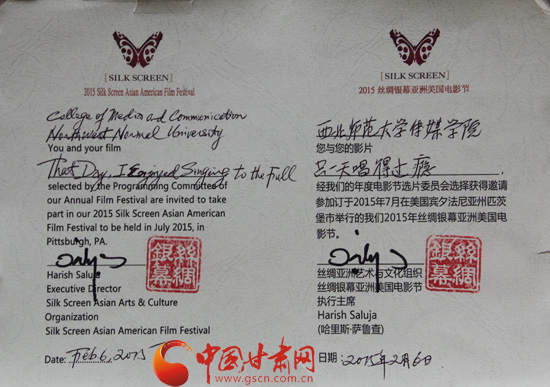 [ SILK SCREEN ]
2015 Silk Screen Asian American Film Festival
College of Media and Communication
Northwest Normal University
You and your film
That Day, I Enjoyed Singing to the Full
selected by the Programming Committee of
our Annual Film Festival are invited to take
part in our 2015 Silk Screen Asian American
Film Festival to be held in July 2015, in
Pittsburgh, PA.
Harish Saluja
Executive Director
Silk Screen Asian Arts & Culture
Organization
Silk Screen Asian American Film Festival
Date: Feb 6, 2015
[ SILK SCREEN ]
2015 丝绸银幕亚洲美国电影节
西北师范大学传媒学院
您与您的影片
那一天唱得过瘾
经我们的年度电影节选片委员会选择获得邀请
参加订于2015年7月在美国宾夕法尼亚州匹茨
堡市举行的我们2015年丝绸银幕亚洲美国电影
节。
丝绸亚洲艺术与文化组织
丝绸银幕亚洲美国电影节
执行主席
Harish Saluja
(哈里斯·萨鲁查)
日期: 2015年2月6日
絲綢銀幕
絲綢銀幕
中国甘肃网
www.gscn.com.cn